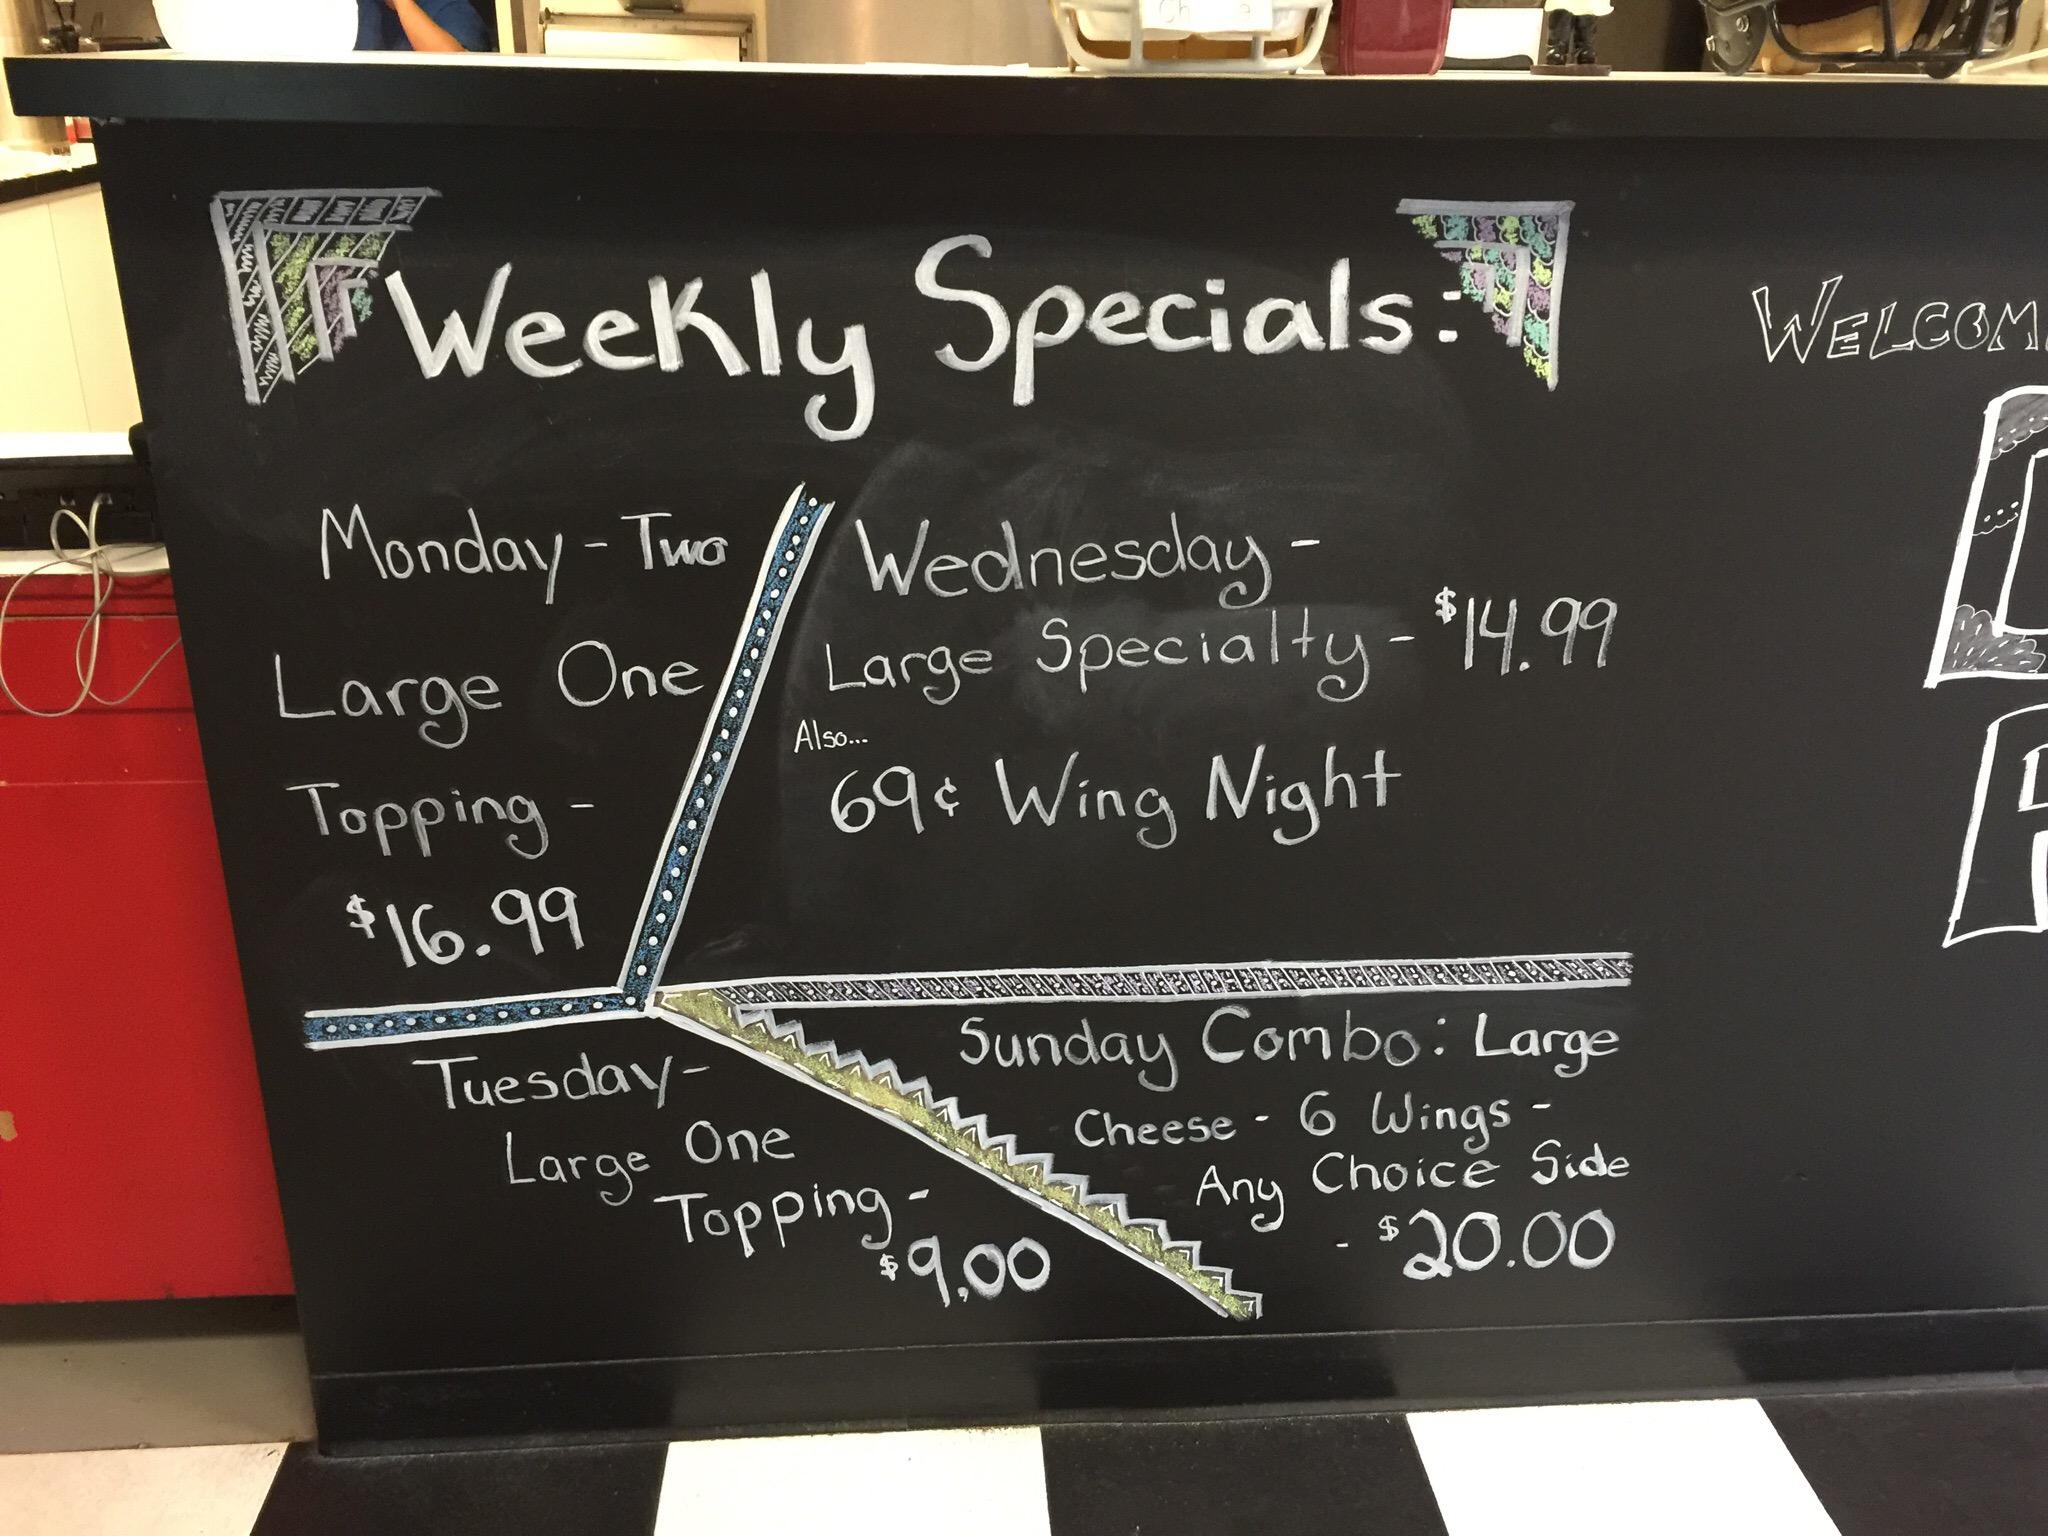 Weekly Specials:
Monday - Two
Large One
Topping -
$16.99
Wednesday -
Large Specialty - $14.99
Also...
69¢ Wing Night
Tuesday -
Large One
Topping -
$9.00
Sunday Combo: Large
Cheese - 6 Wings -
Any Choice Side
- $20.00